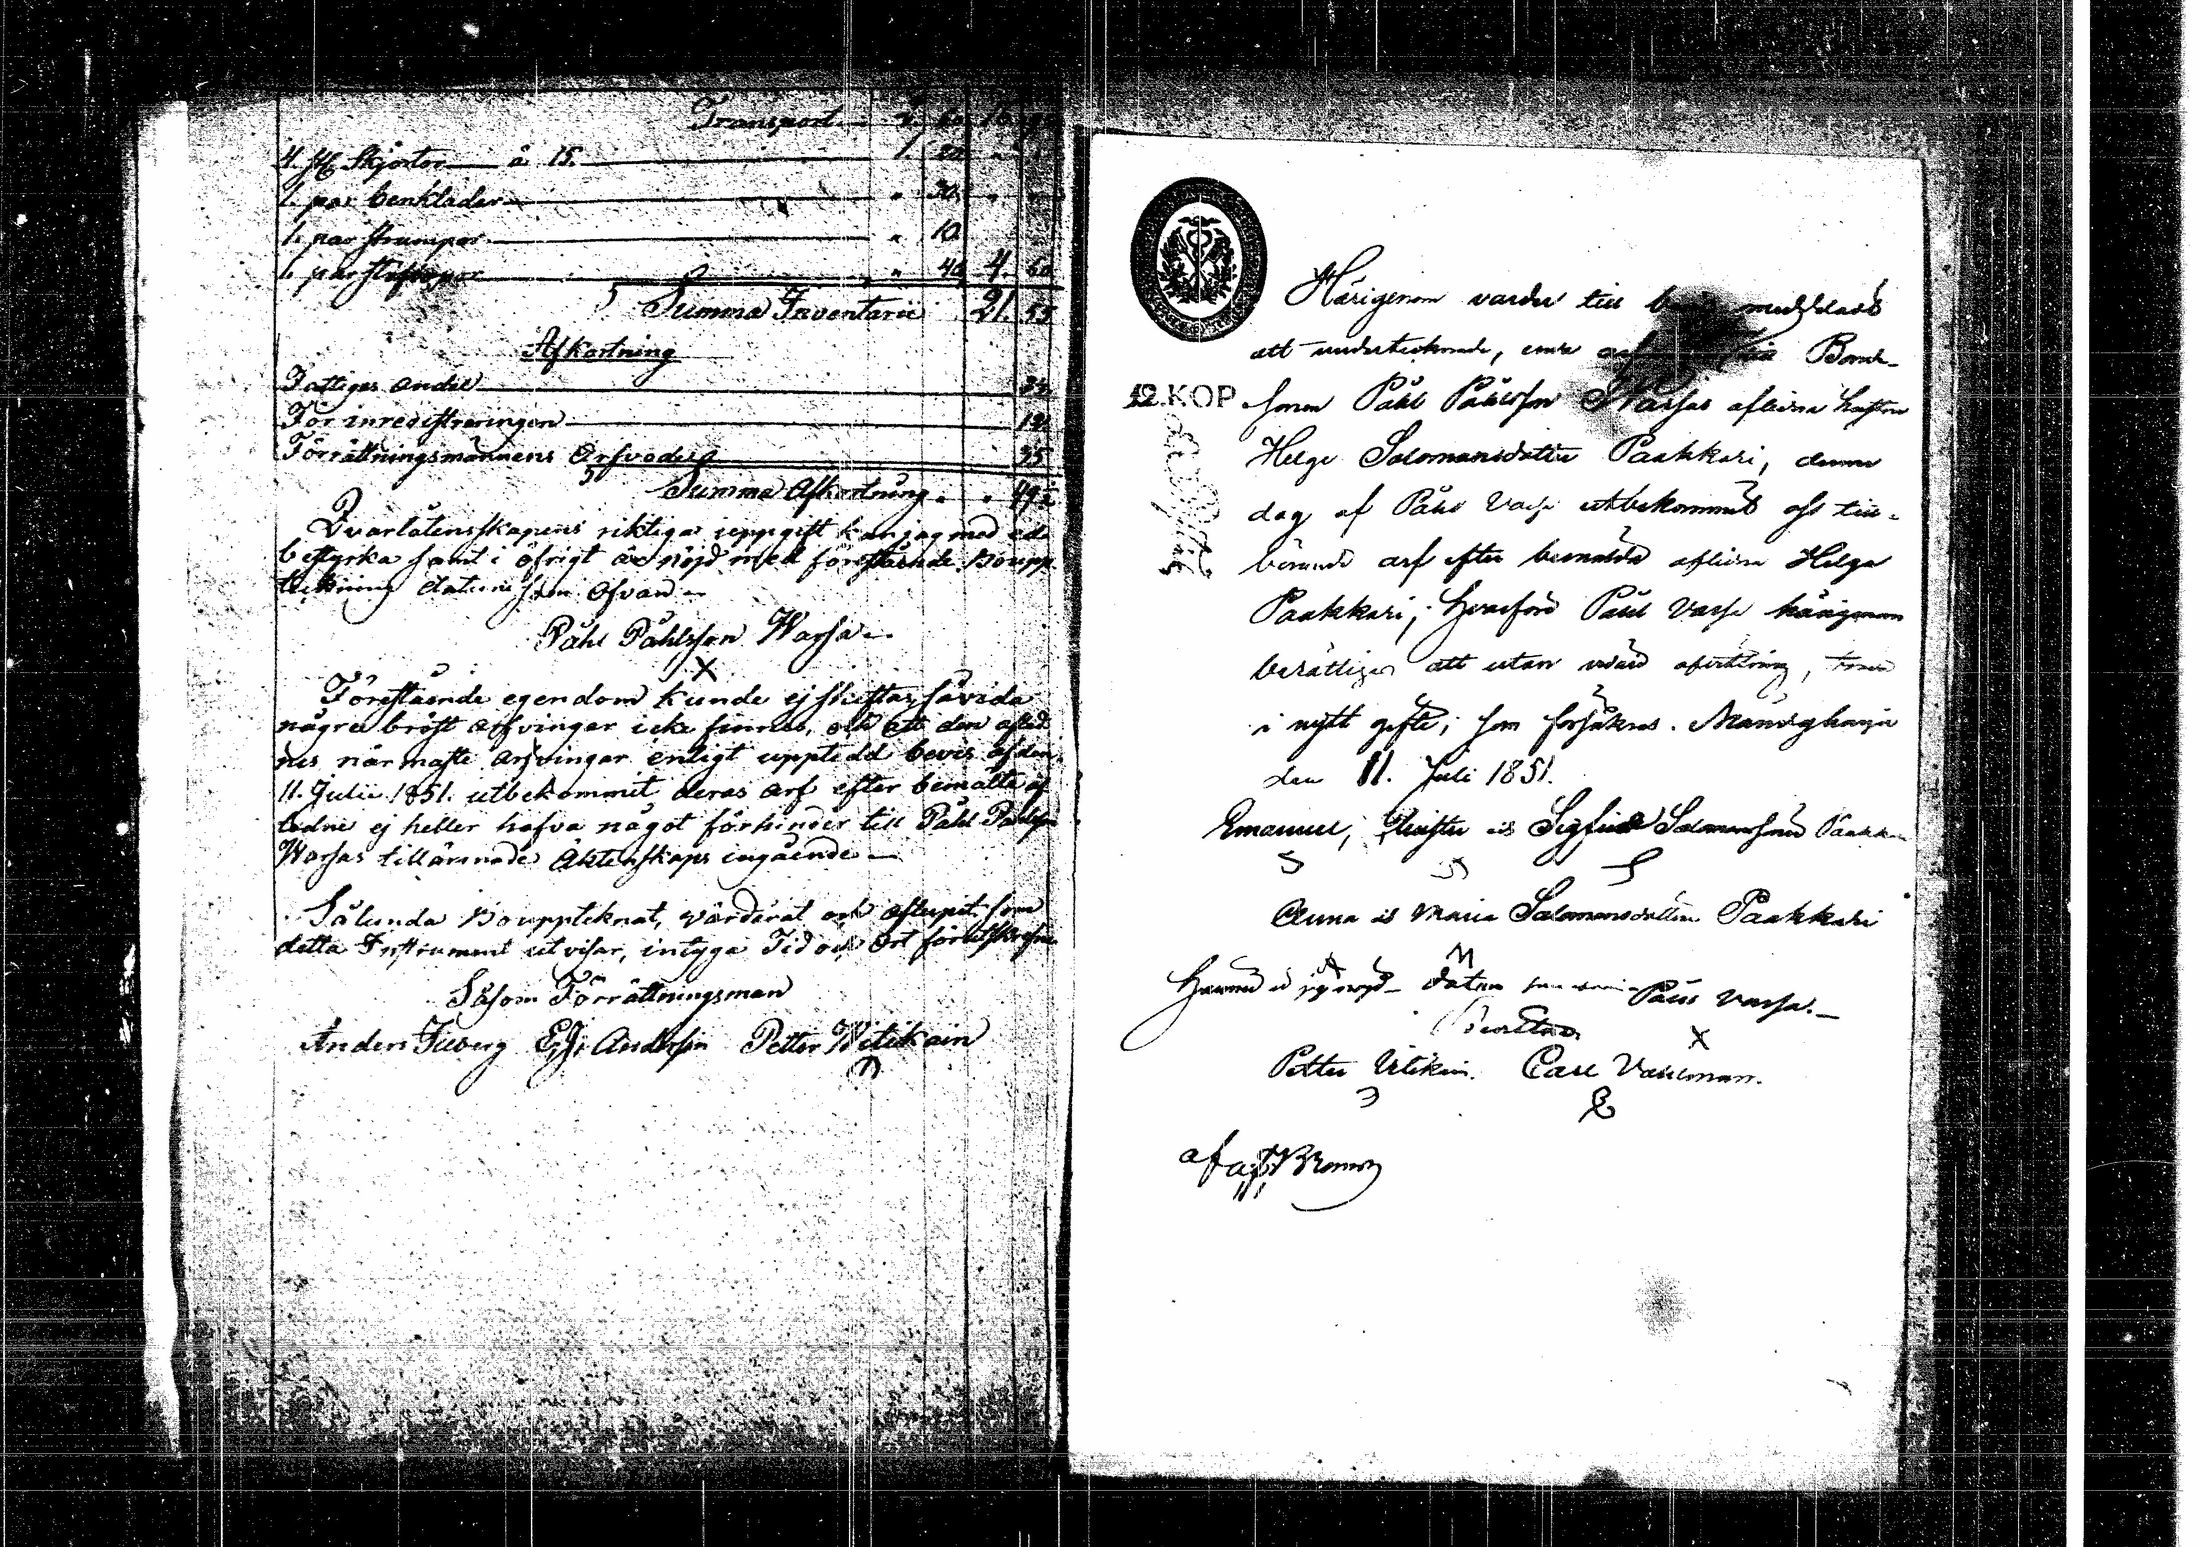 Transport
4. st. Skjortor à 15. 1.
1. par benkläder " 30.
1. par strumpor " 10
1. par " 40 4. 60
Summa Inventarii 21. 55
Afkortning
Fattiges andel
För inregistreringen
Förrättningsmännens Arfvode 35
Summa Afkortning
Qvarlåtenskapens riktiga uppgift kan jag med ed
bestyrka samt i öfrigt är nöjd med förestående Boupp
tekning datum som ofvan
Påhl Påhlsson Warsa
X
Förestående egendom kunde ej skiftas såvida
några bröst arfvingar icke finnes, och att den aflid
nes närmaste arfvingar enligt uppteedd bevis af den
11. Julii 1851. utbekommit deras arf efter bemälte af
ledne ej heller hafva något förhinder till Påhl Påhlson
Warsas tillärnade äktenskaps ingående
Sålunda Bouppteknat, värderat och aflupit som
detta Instrument utvisar, intyga Tid och Ort förutskrefne
Såsom Förrättningsman
Anders E. J. Andersin Petter Witikain
Härigenom varder till meddeladt
att undertecknade, Bonde-
sonen Påhl Påhlsson Warsas aflidna hustru
12. KOP
Helge Salomonsdotter Paakkari, denna
dag af Påhl Varsa utbekommit oss till-
börande arf efter bemälda aflidna Helga
Paakkari; Påhl Varsa härigenom
berättigas att utan vidare afvittring, träda
i nytt gifte; som försäkras.
den 11. Juli 1851.
Emanuel, Christer och Sigfrid Salomonssöner Paakkari
Anna och Maria Salomonsdöttrar Paakkari
Härmed är jag nöjd datum som Påhl Varsa.
X
Petter Vitikain. Carl